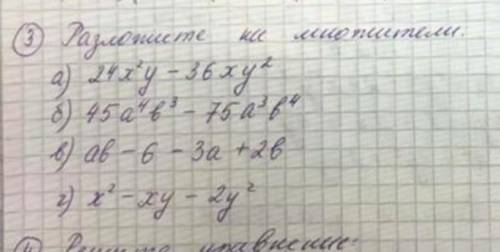 ③ Разложите на множители.
а) 24x²y - 36xy²
б) 45a⁴b³ - 75a³b⁴
в) ab - 6 - 3a + 2b
г) x² - xy - 2y²
Решите уравнение: